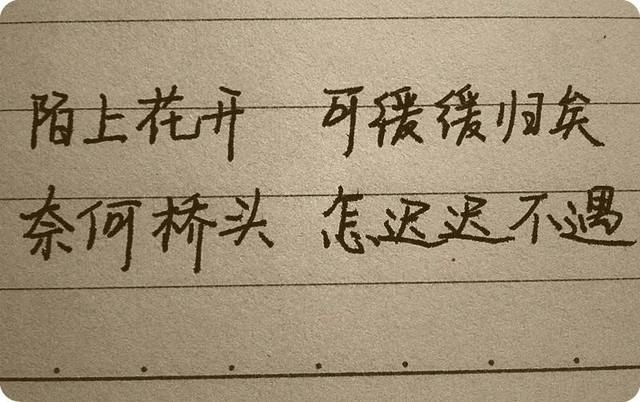 陌上花开 可缓缓归矣
奈何桥头 怎迟迟不遇